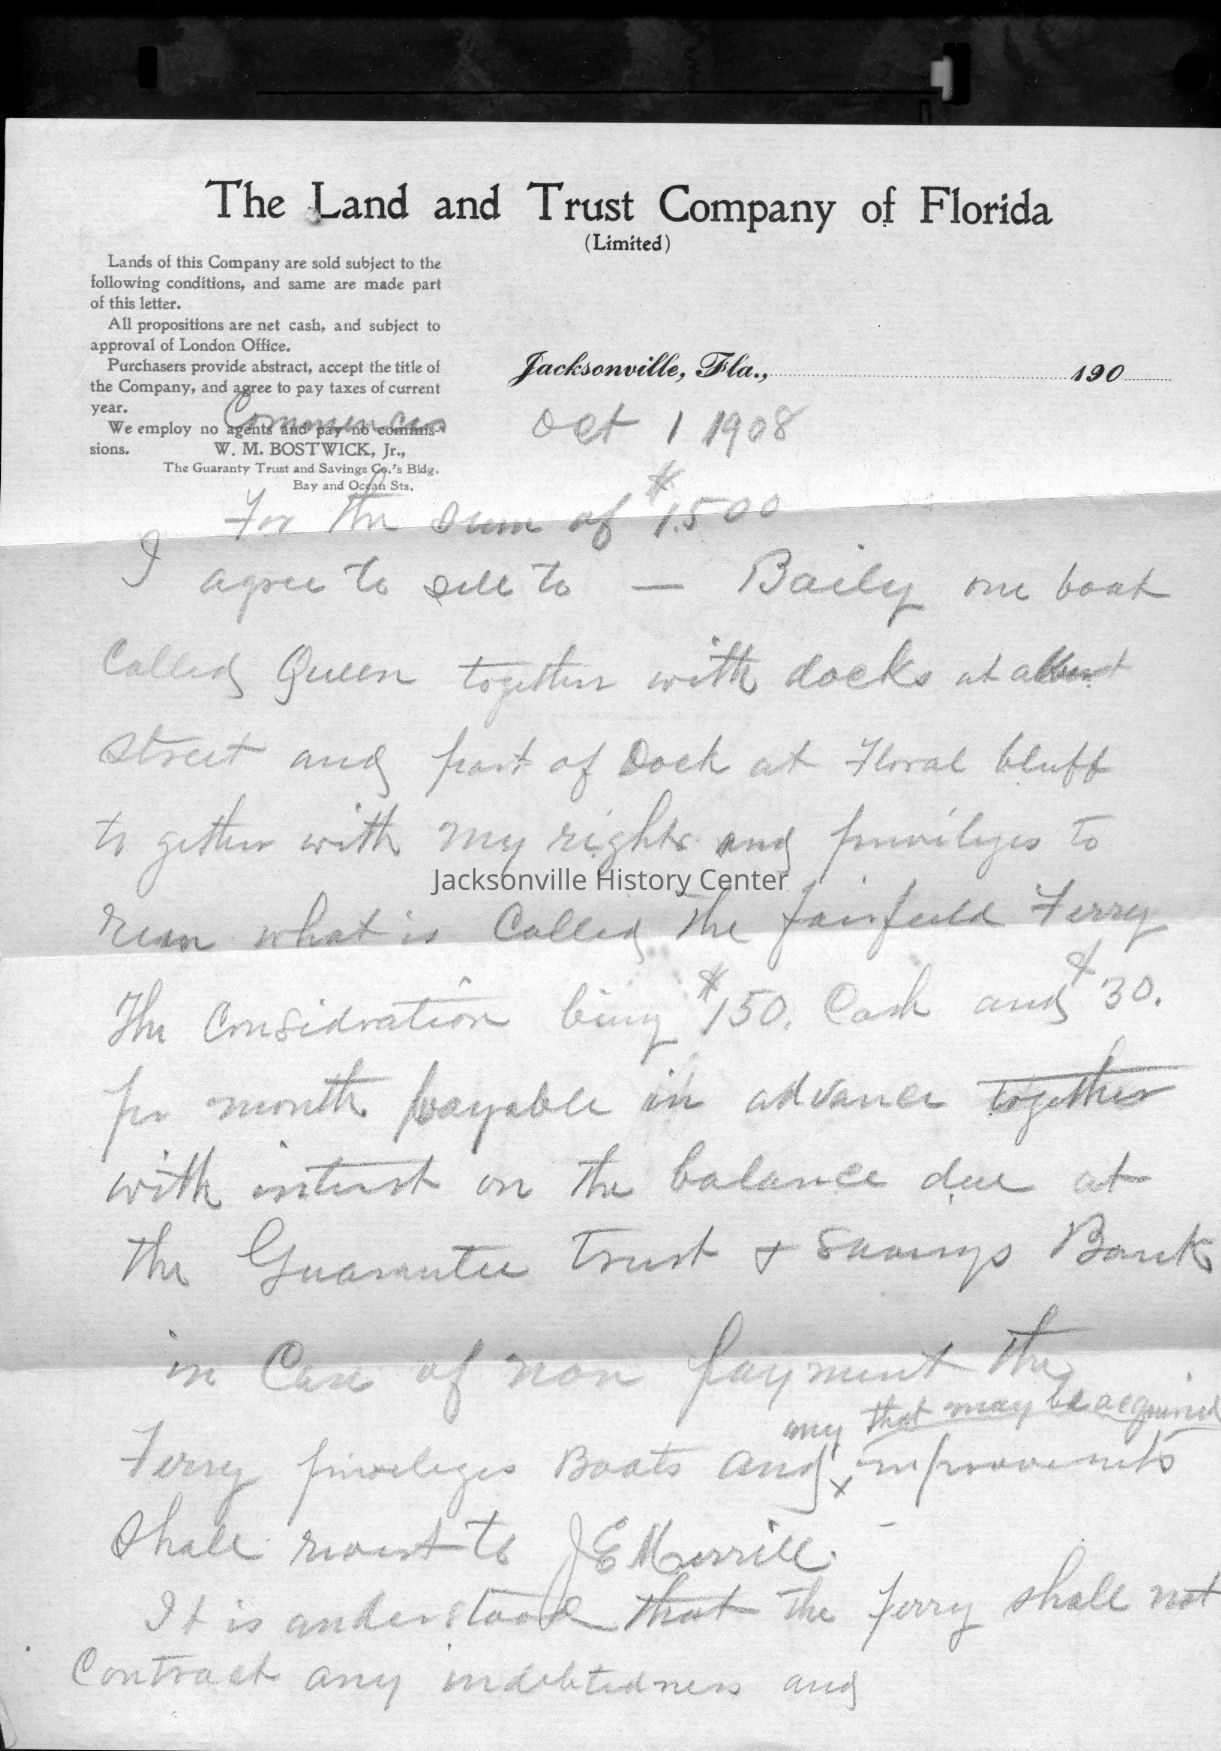 The Land and Trust Company of Florida
(Limited)
Lands of this Company are sold subject to the
following conditions, and same are made part
of this letter.
All propositions are net cash, and subject to
approval of London Office.
Purchasers provide abstract, accept the title of
the Company, and agree to pay taxes of current
year.
We employ no agents and pay no commis-
sions.
W. M. BOSTWICK, Jr.,
The Guaranty Trust and Savings Co.'s Bldg.
Bay and Ocean Sts.
Jacksonville, Fla., 190
Commences Oct 1 1908
For the sum of $1500
I agree to sell to — Baily one boat
Called Queen together with docks at
street and part of Dock at Floral bluff
to gether with my rights and privileges to
run what is Called the fairfield Ferry
The Considration being $150. Cash and $30.
per month payable in advance together
with intrest on the balance due at
the Guarantee Trust + Savings Bank
in Case of non payment the
Ferry privileges Boats and x improvments
any that may be acquired
Shall revert to J E Merrill.
It is understood that the Ferry shall not
Contract any indebtedness and
Jacksonville History Center